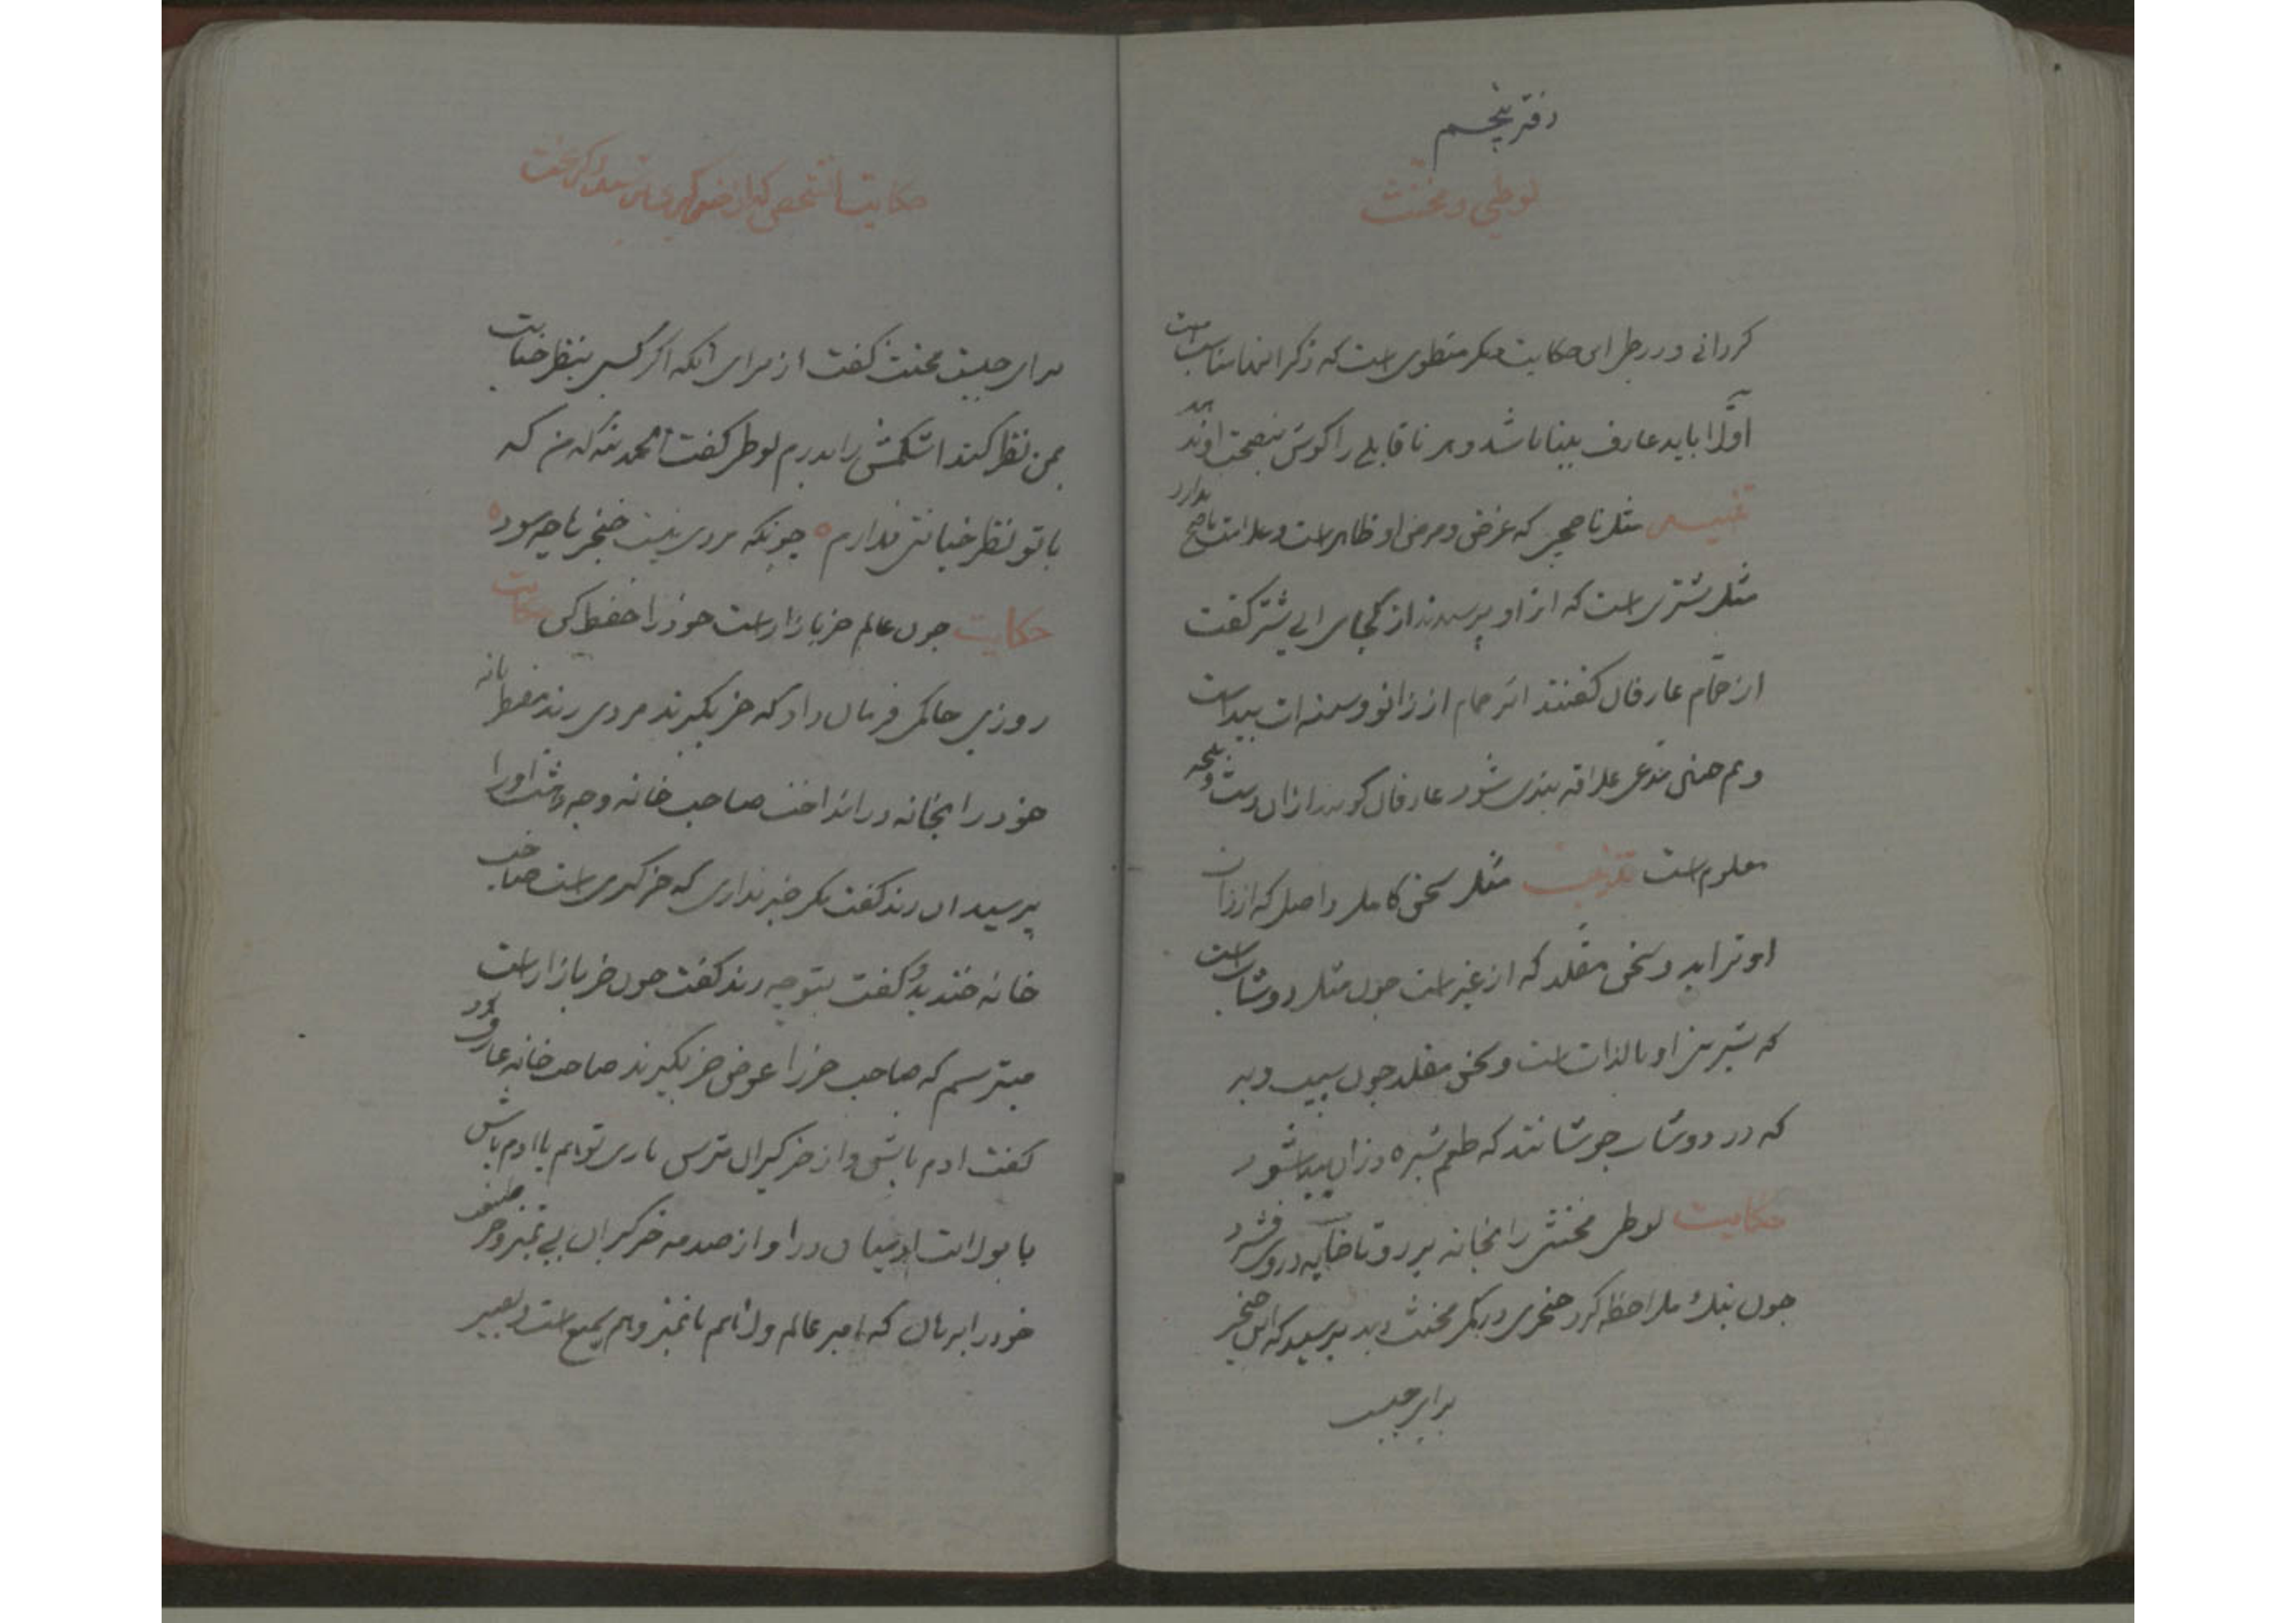 دفتر پنجم
لوطی و مخنث
کردانی در ربط این حکایت دیگر منظوی است که ذکر اینها مناسبست
اولًا باید عارف بینا باشد و هر ناقابلی را گوش بنصیحت او ندهد
تمثیل مثل ناصحی که غرض و مرض او ظاهر است و علامت ناصح ندارد
مثل شتری است که از او پرسیدند از کجا می ای شتر گفت
از حمام عارفان گفتند اثر حمام از زانو و سینه ات پیداست
و هم چنین مدعی علاقه بندی شود عارفان گویند از ان دست و پنجه
معلوم است مثل سخن کامل واصل که از زبان
او تراید و سخن مقلد که از غیر است چون مثل دوشاب است
که شیرینی او بالذات است و سخن مقلد چون سیب و به
که در دوشاب جوشانند که طعم شیره در ان پیدا شود
حکایت لوطی مخنثی را بخانه برد و تا خایه در وی فشرد
چون نیک ملاحظه کرد خنجری در کمر مخنث دید پرسید که این خنجر
برای چیست
حکایت انشخص که از خر گیری میگریخت
برای چیست مخنث گفت از برای انکه اگر کسی بنظر خیانت
بمن نظر کند اشکمش را بدرم لوطی گفت الحمد لله که من که
با تو نظر خیانتی ندارم چونکه مردی نیست خنجرها چه سود
حکایت چون عالم خر بازار است خود را حفظ کن حکایت
روزی حاکمی فرمان داد که خر بگیرند مردی رند مضطربانه
خود را بخانه در انداخت صاحب خانه وجه وحشت او را
پرسید ان رند گفت مگر خبر نداری که خر گیری است صاحب
خانه خندید و گفت بتو چه رند گفت چون خر بازار است
میترسم که صاحب خر را عوض خر بگیرند صاحب خانه عارف بود
گفت ادم باش و از خر گیران مترس باری تو هم با ادم باش
با بولایت ادمیان در او از صدمه خر گیران بی تمیز و خر صفت
خود را برهان که امیر عالم ولایم با تمیز و هم سمیع است و بصیر